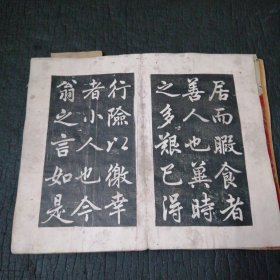 居而暇食者
善人也冀時
之多艱已得
行險以徼幸
者小人也今
翁之言如是